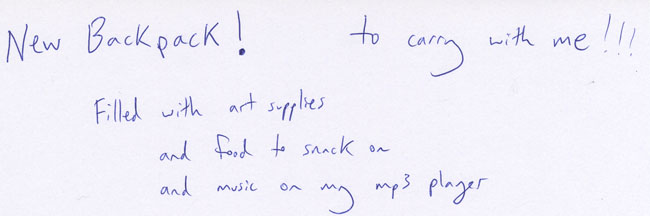 New Backpack! to carry with me!!!
Filled with art supplies
and food to snack on
and music on my mp3 player